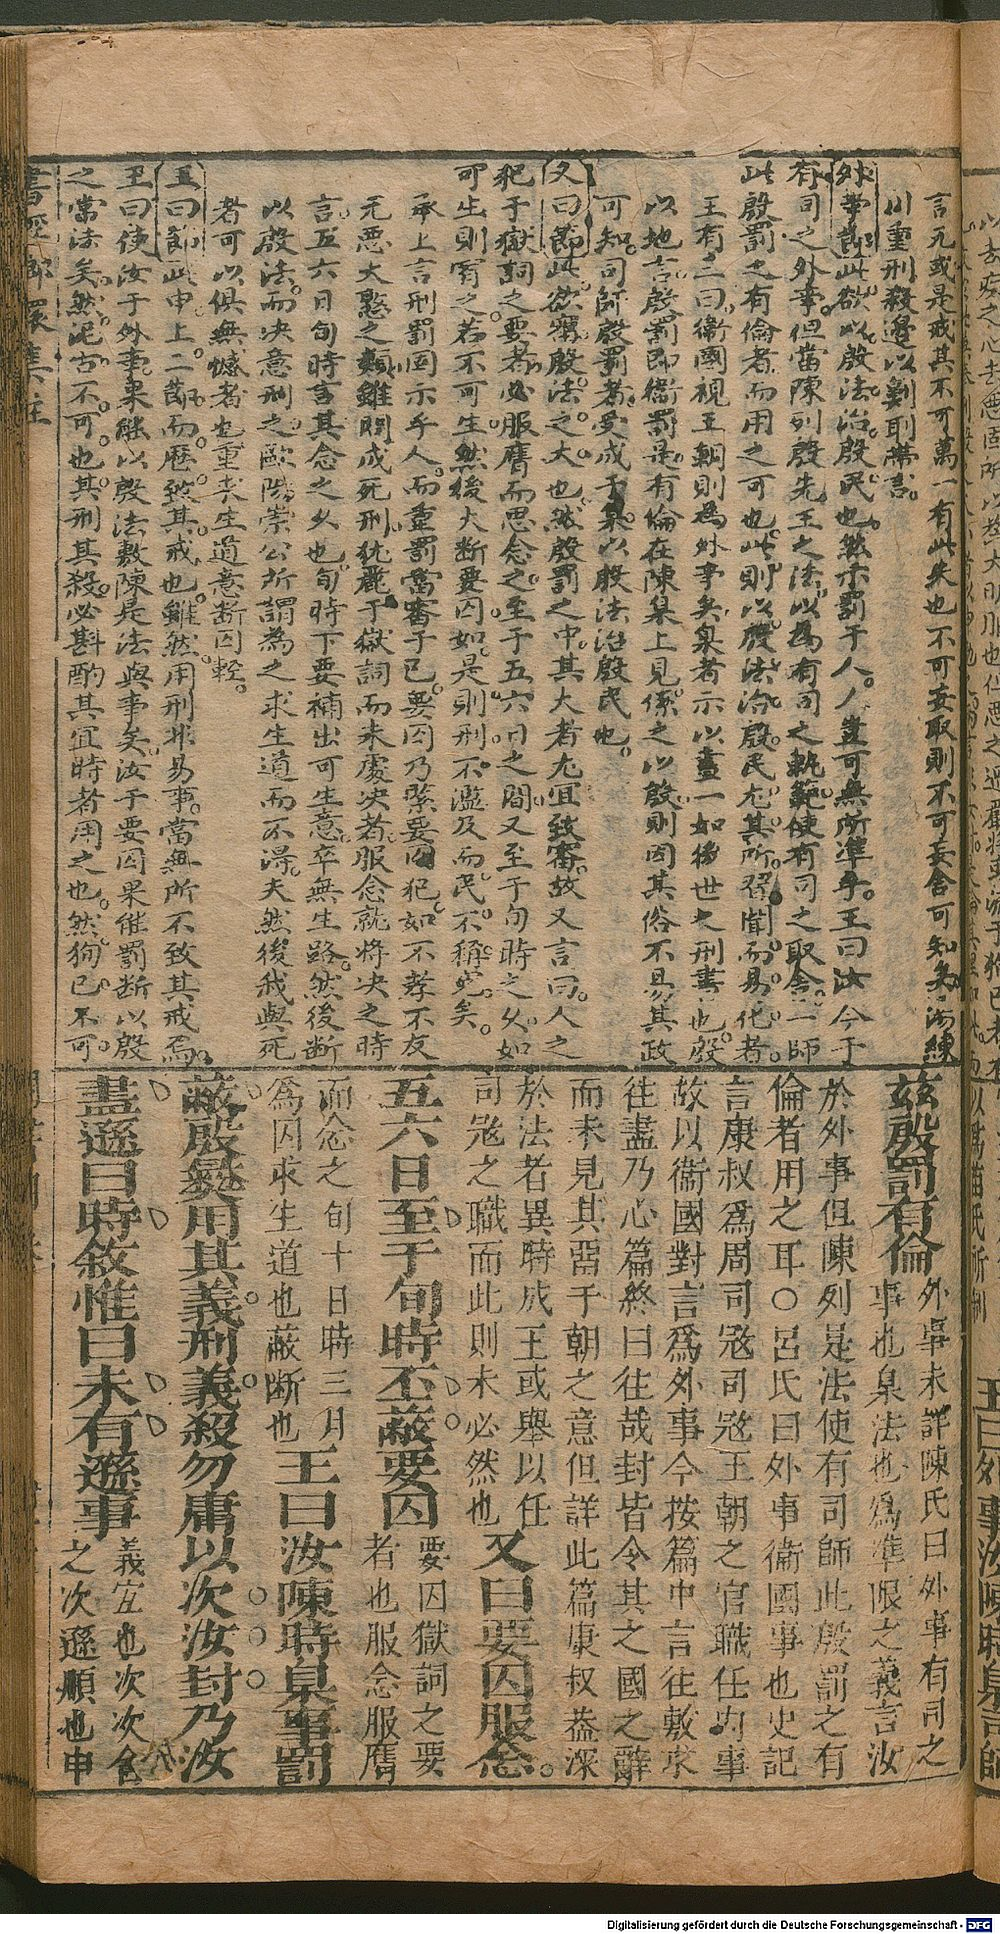 言尤或是戒其不可萬一有此失也不可妄取則不可妄舍可知矣
刑重刑殺邊以劓刵帶言
外事節此欲以殷法治殷民也然示罰于人人豈可無所準乎王曰汝今于
有司之外事但當陳列殷先王之法以為有司之軌範使有司之取舍一師
此殷罰之有倫者而用之可也此則以殷法治殷民尤其所習聞而易化者
王有二曰衛國視王朝則為外事矣臬者示以畫一如後世之刑書也殷
以地言殷罰即衛罰是有倫在陳臬上見係之以殷則因其俗不易其政
可知司師殷罰者受成于臬以殷法治殷民也
又曰節此欲審殷法之大也然殷罰之中其大者尤宜致審故又言曰人之
犯于獄詞之要者必服膺而思念之至于五六日之間又至于旬時之久如
可生則宥之若不可生然後大斷要囚如是則刑不濫及而民不稱冤矣
承上言刑罰固示乎人而重罰當審于已要囚乃緊要囚犯如不孝不友
元惡大憝之類雖問成死刑犹麗于獄詞而未處决者服念就將决之時
言五六日旬時言其念之久也旬時下要補出可生意卒無生路然後斷
以殷法而决意刑之歐陽崇公所謂為之求生道而不得夫然後我與死
者可以俱無憾者也重求生道意斷囚輕
王曰節此申上二節而歷致其戒也雖然用刑非易事當無所不致其戒焉
王曰使汝于外事果能以殷法敷陳是法與事矣汝于要囚果能罰斷以殷
之當法矣然泥古不可也其刑其殺必斟酌其宜時者用之也然狥已不可
茲殷罰有倫
外事未詳陳氏曰外事有司之
事也臬法也為準限之義言汝
於外事但陳列是法使有司師此殷罰之有
倫者用之耳○呂氏曰外事衞國事也史記
言康叔爲周司寇司寇王朝之官職任內事
故以衞國對言爲外事今按篇中言往敷求
往盡乃心篇終曰往哉封皆令其之國之辭
而未見其畱于朝之意但詳此篇康叔葢深
於法者異時成王或舉以任
司寇之職而此則未必然也
又曰要囚服念
五六日至于旬時丕蔽要囚
要囚獄詞之要
者也服念服膺
而念之旬十日時三月
爲囚求生道也蔽斷也
王曰汝陳時臬事罰
蔽殷彝用其義刑義殺勿庸以次汝封乃汝
盡遜曰時敘惟曰未有遜事
義宜也次次舍
之次遜順也申
Digitalisierung gefördert durch die Deutsche Forschungsgemeinschaft - DFG